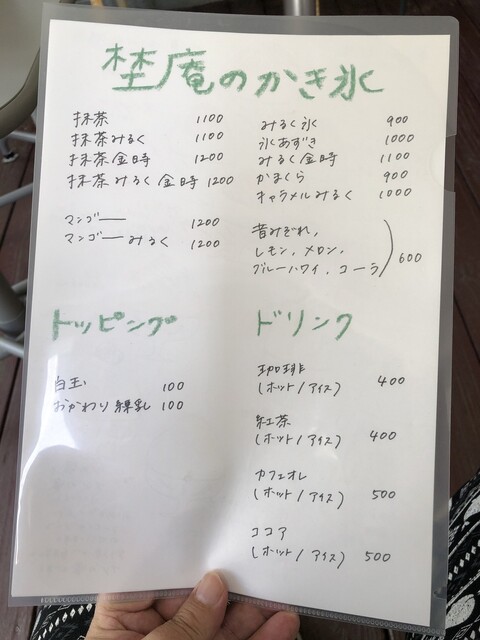 埜庵のかき氷
抹茶 1100
抹茶みるく 1100
抹茶金時 1200
抹茶みるく金時 1200
マンゴー 1200
マンゴーみるく 1200
みるく氷 900
氷あずき 1000
みるく金時 1100
かまくら 900
キャラメルみるく 1000
昔みぞれ,
レモン, メロン,
ブルーハワイ, コーラ
600
トッピング
白玉 100
おかわり練乳 100
ドリンク
珈琲
(ホット/アイス) 400
紅茶
(ホット/アイス) 400
カフェオレ
(ホット/アイス) 500
ココア
(ホット/アイス) 500